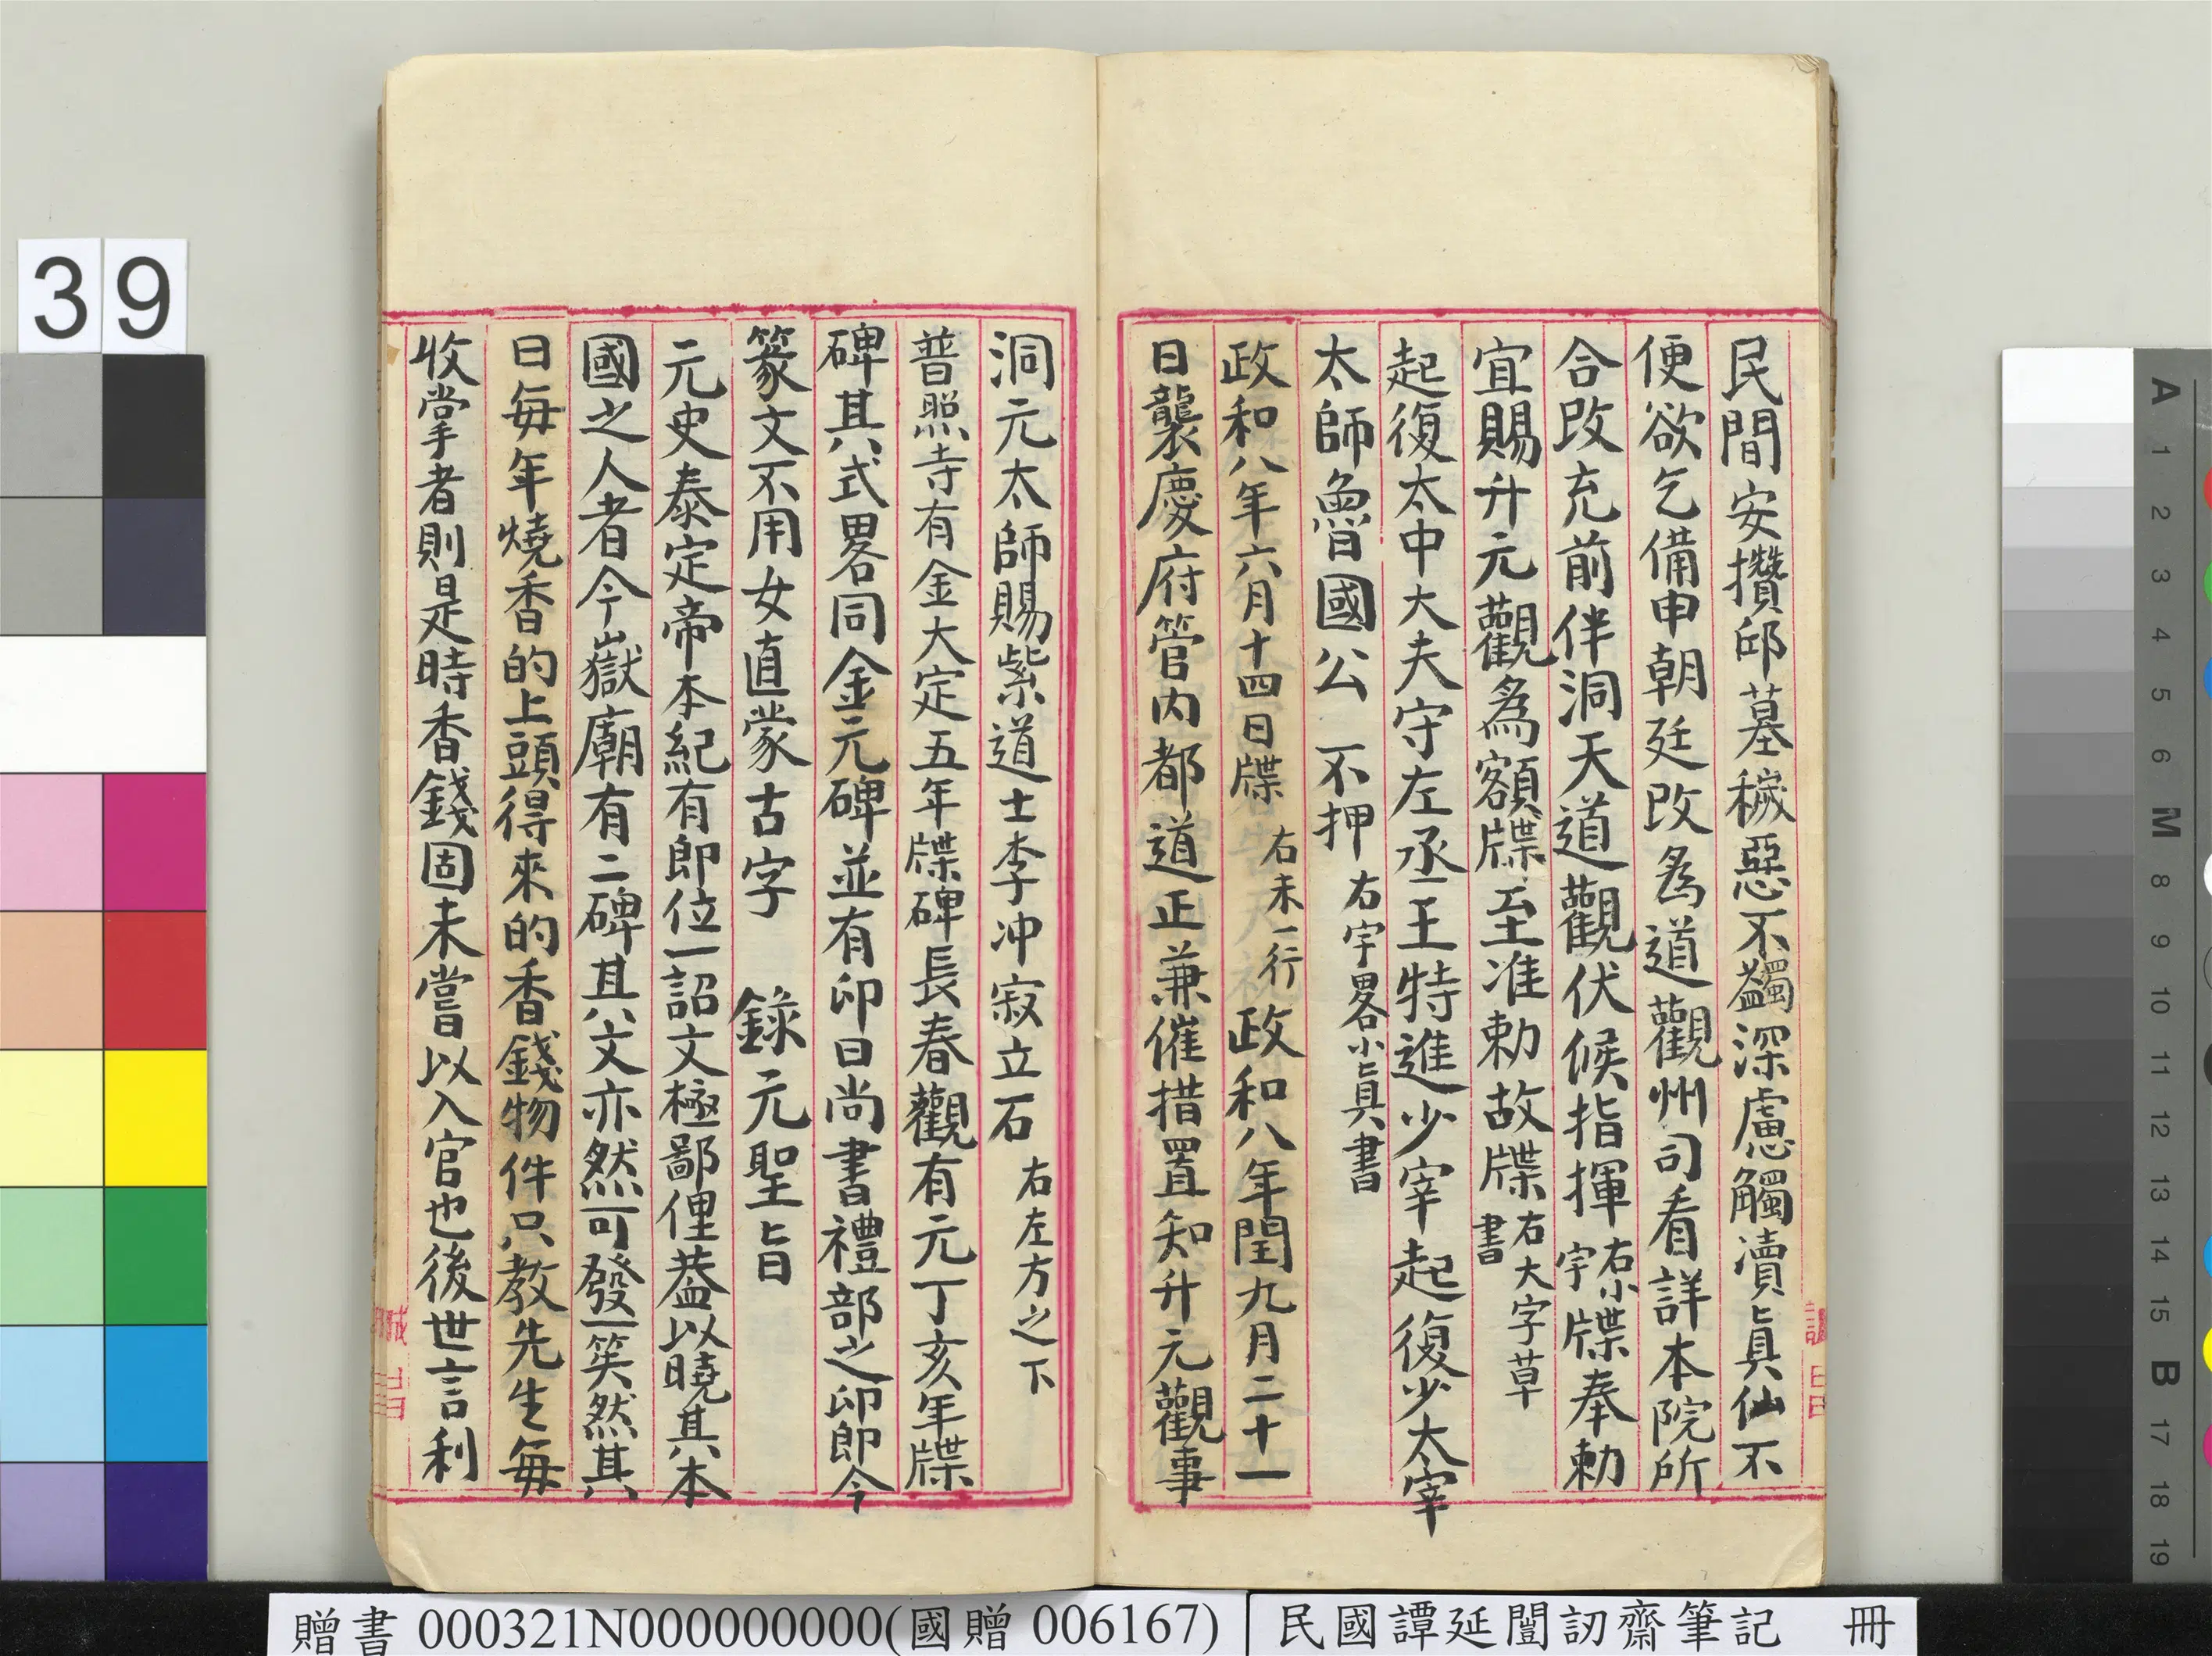 民間安攢邱墓穢惡不蠲深慮觸瀆真仙不
便欲乞備申朝廷改為道觀州司看詳本院所
合改充前件洞天道觀伏候指揮右小字牒奉勅
宜賜升元觀為額牒至准勅故牒右大字草書
起復太中大夫守左丞王特進少宰起復少太宰
太師魯國公 不押 右字畧小真書
政和八年六月十四日牒 右末一行 政和八年閏九月二十一
日襲慶府管内都道正兼催措置知升元觀事
洞元太師賜紫道士李冲寂立石 右左方之下
普照寺有金大定五年牒碑長春觀有元丁亥年牒
碑其式畧同金元碑並有印曰尚書禮部之印即今
篆文不用女直蒙古字 錄元聖旨
元史泰定帝本紀有即位一詔文極鄙俚葢以曉其本
國之人者今嶽廟有二碑其文亦然可發一笑然其
曰每年燒香的上頭得來的香錢物件只教先生每
收掌者則是時香錢固未嘗以入官也後世言利
39
贈書 000321N000000000(國贈 006167)
民國譚延闓訒齋筆記 冊
A
1
2
3
4
5
6
M
8
9
10
11
12
13
14
15
B
17
18
19